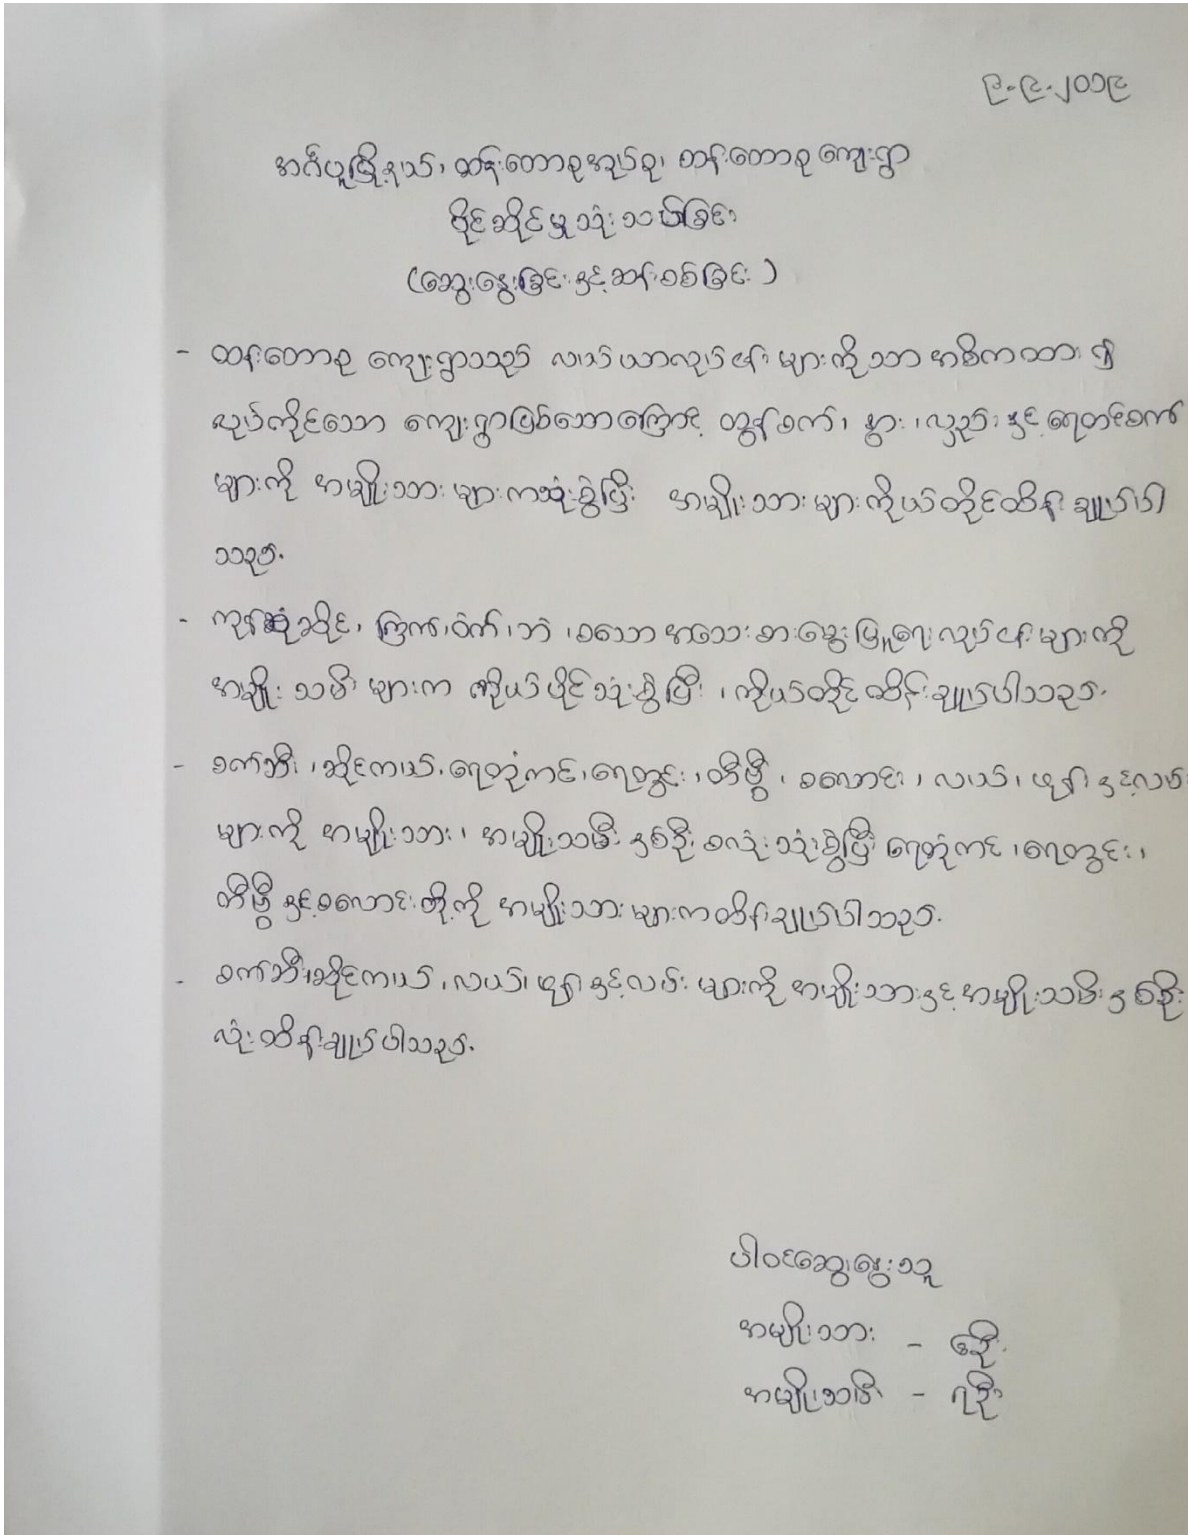 ၉-၉-၂၀၁၉
အင်္ဂပူမြို့နယ်၊ ထန်းတောစုအုပ်စု၊ ထန်းတောစု ကျေးရွာ
ပိုင်ဆိုင်မှု သုံးသပ်ခြင်း
(ဆွေးနွေးခြင်းနှင့်ဆန်းစစ်ခြင်း)
- ထန်းတောစု ကျေးရွာသည် လယ်ယာလုပ်ငန်း များကိုသာ အဓိကထား ၍
လုပ်ကိုင်သော ကျေးရွာဖြစ်သောကြောင့် ထွန်စက်၊ နွား၊ လှည်း နှင့် ရေတင်စက်
များကို အမျိုးသား များကသုံးစွဲပြီး အမျိုးသား များကိုယ်တိုင်ထိန်းချုပ်ပါ
သည်.
- ကုန်စုံဆိုင်၊ ကြက်၊ ဝက်၊ ဘဲ ၊ စသော အသေးစားမွေးမြူရေး လုပ်ငန်းများကို
အမျိုး သမီး များက ကိုယ်ပိုင်သုံးစွဲပြီး ၊ ကိုယ်တိုင် ထိန်းချုပ်ပါသည်.
- စက်ဘီး ၊ ဆိုင်ကယ်၊ ရေတုံကင်၊ ရေတွင်း ၊ တီဗွီ ၊ စလောင်း ၊ လယ်၊ ဖုန်း နှင့်လမ်း
များကို အမျိုးသား ၊ အမျိုးသမီး နှစ်ဦး စလုံး သုံးစွဲပြီး ရေတုံကင် ၊ ရေတွင်း ၊
တီဗွီ နှင့် စလောင်းတို့ ကို အမျိုးသား များကထိန်းချုပ်ပါသည်.
- စက်ဘီး၊ ဆိုင်ကယ် ၊ လယ်၊ ဖုန်း နှင့်လမ်း များကို အမျိုးသားနှင့် အမျိုးသမီး နှစ်ဦး
လုံး ထိန်းချုပ်ပါသည်.
ပါဝင်ဆွေးနွေးသူ
အမျိုးသား - ၆ဦး
အမျိုးသမီး - ၇ဦး